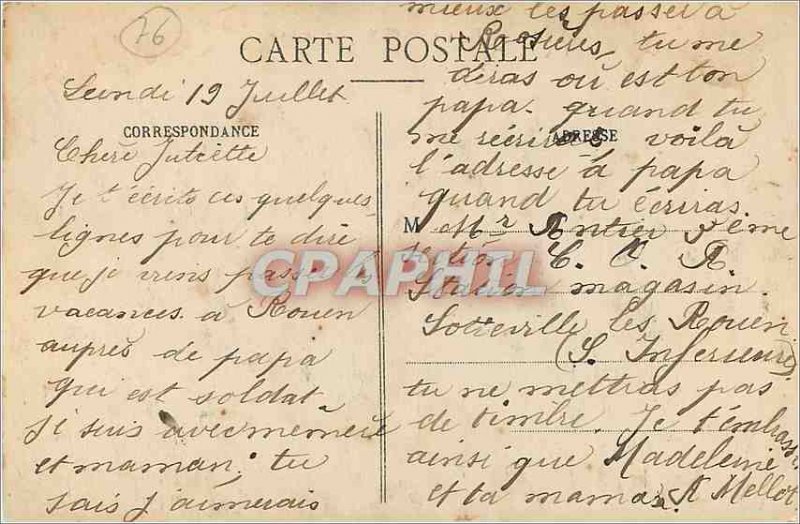 76
CARTE POSTALE
Lundi 19 Juillet
CORRESPONDANCE
Chère Juliette
Je t'écrits ces quelques
lignes pour te dire
que je viens passer les
vacances à Rouen
auprès de papa
qui est soldat
je suis avec mémère
et maman. tu
sais j'aimerais
mieux les passer à
Rosières, tu me
diras où est ton
papa. quand tu
me récriras, voilà
ADRESSE
l'adresse à papa
quand tu écriras.
M Mr Antier 3eme
section C. O. A
Station magasin
Sotteville les Rouen
(S. Inferieure)
tu ne mettras pas
de timbre. Je t'embrasse
ainsi que Madeleine
et ta maman. A Mellot
CPAPHIL